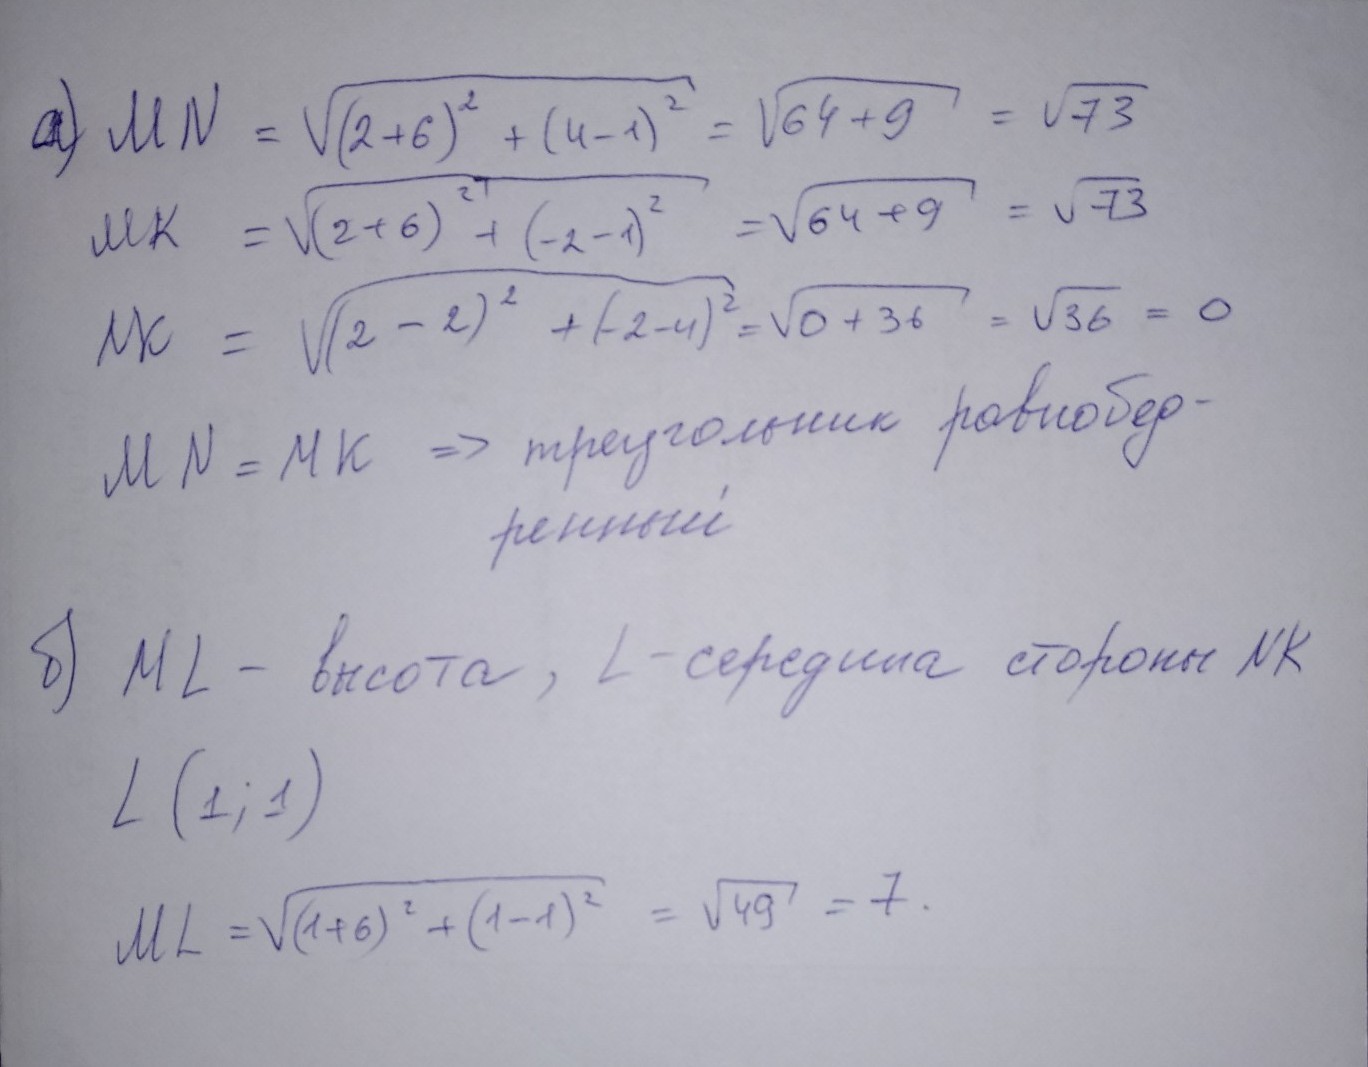 а) MN = √(2+6)² + (4-1)² = √64+9 = √73
MK = √(2+6)² + (-2-1)² = √64+9 = √73
NK = √(2-2)² + (-2-4)² = √0+36 = √36 = 0
MN = MK => треугольник равнобед-
ренный
б) ML - высота, L - середина стороны NK
L (1; 1)
ML = √(1+6)² + (1-1)² = √49 = 7.